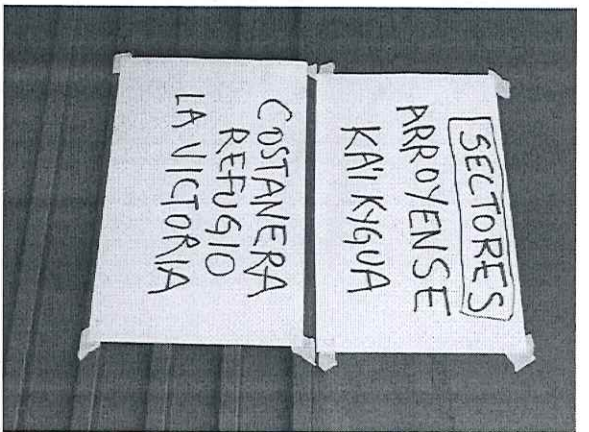 SECTORES
ARROYENSE
KA'I KYGUA
COSTANERA
REFUGIO
LA VICTORIA